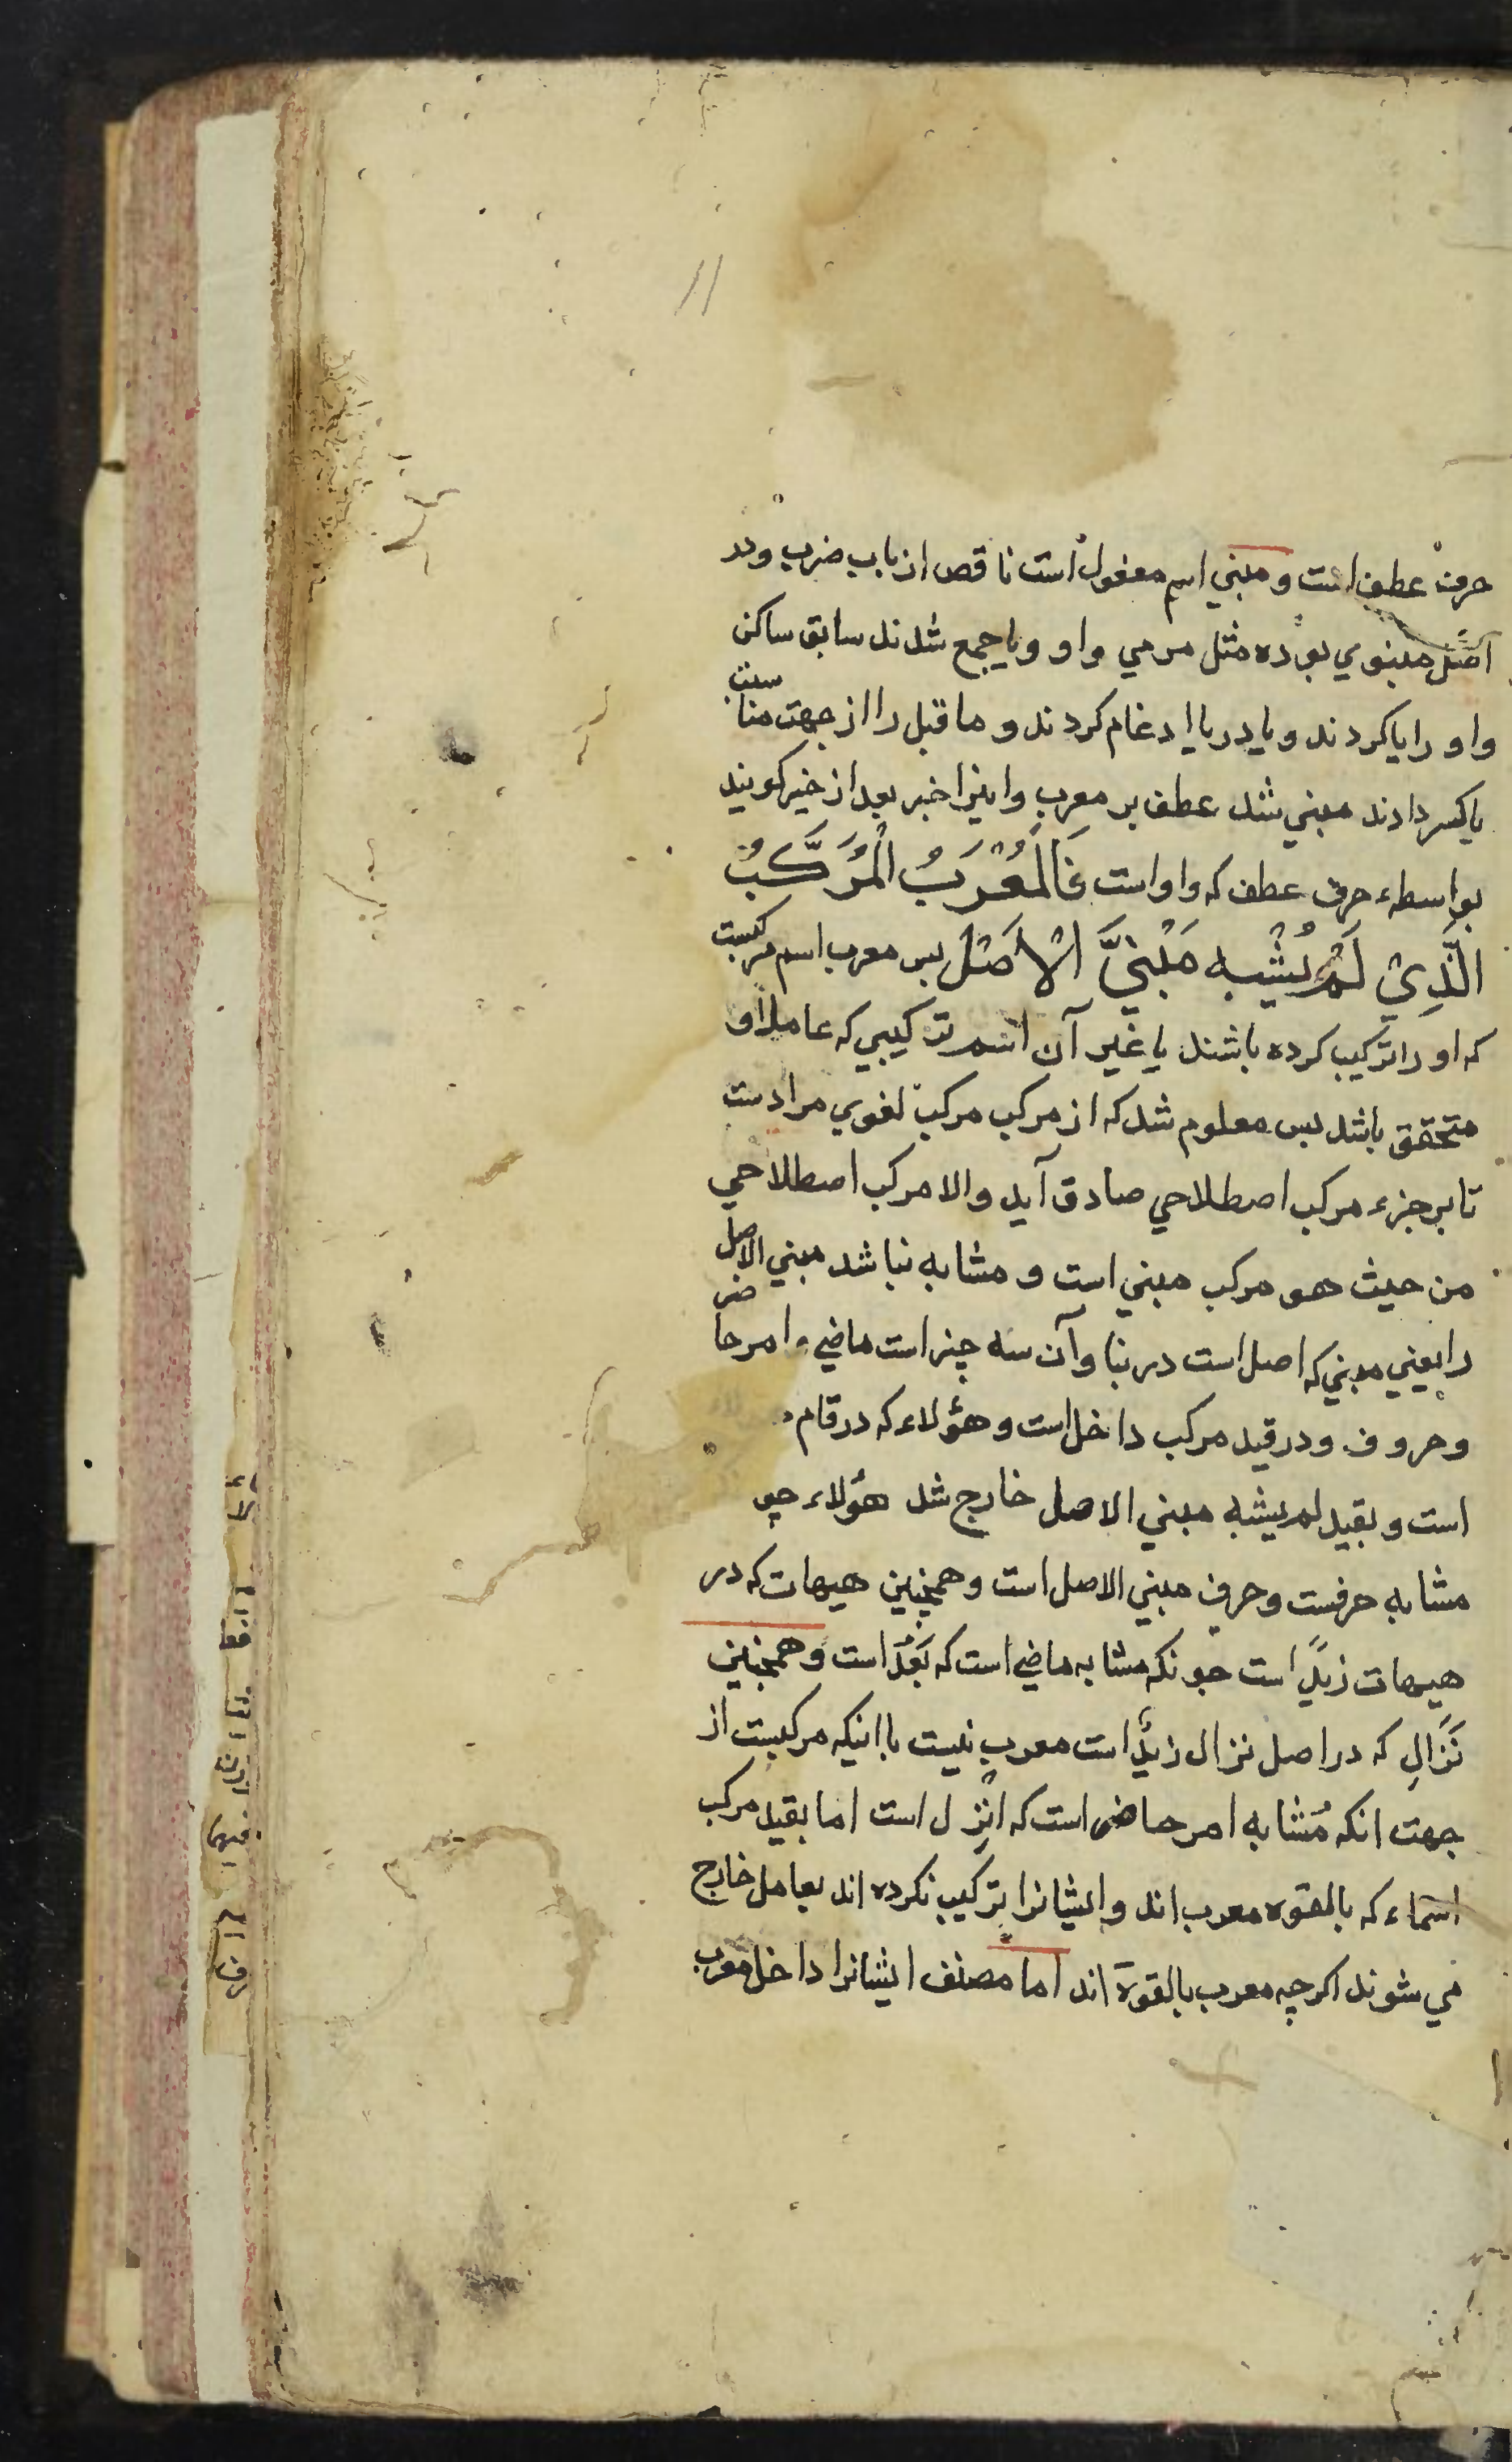 11
حرف عطف است و مبني اسم مفعول است ناقص از باب ضرب و در
اصل مبنوي بوده مثل مرمي واو و يا جمع شدند سابق ساكن
واو را يا كردند و يا در يا ادغام كردند و ما قبل را از جهت مناسبت
يا كسر دادند مبني شد عطف بر معرب و اينرا خبر بعد از خبر كويند
بواسطهء حرف عطف كه واو است فَالْمُعْرَبُ الْمُرَكَّبُ
الَّذِيْ لَمْ يُشْبِه مَبْنِيَّ الْاَصْل پس معرب اسم مركبست
كه او را تركيب كرده باشند با غير آن اسم تركيبي كه عامل او
متحقق باشد پس معلوم شد كه از مركب مركب لغوي مرادست
تا بر جزء مركب اصطلاحي صادق آيد والا مركب اصطلاحي
من حيث هو مركب مبني است و مشابه نباشد مبني الاصل
را يعني مبني كه اصل است در بنا و آن سه چيز است ماضي و امر حاضر
و حروف و در قيد مركب داخل است و هؤلاء كه در قام
است و بقيد لم يشبه مبني الاصل خارج شد هؤلاء چو
مشابه حرفست و حرف مبني الاصل است و همچنين هيهات كه در
هيهات زيدٌ است چونكه مشابه ماضي است كه بَعُدَ است و همچنين
نَزَالِ كه در اصل نزال زيدٌ است معرب نيست با اينكه مركبست از
جهت انكه مُشابه امر حاضر است كه انْزِل است اما بقيد مركب
اسماء كه بالقوه معرب اند و ايشانرا تركيب نكرده اند بعامل خارج
مي شوند اكرچه معرب بالقوة اند اما مصنف ايشانرا داخل معرب